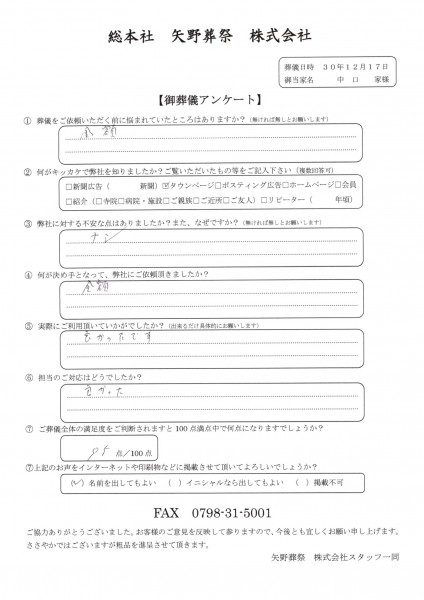 総本社 矢野葬祭 株式会社
葬儀日時 30年12月17日
御当家名 中 口 家様
【御葬儀アンケート】
① 葬儀をご依頼いただく前に悩まれていたところはありますか？（無ければ無しとお願いします）
金額
② 何がキッカケで弊社を知りましたか？ご覧いただいたもの等をご記入下さい（複数回答可）
□新聞広告（ 新聞）☑タウンページ□ポスティング広告□ホームページ□会員
□紹介（□寺院□病院・施設□ご親族□ご近所□ご友人）□リピーター（ 年頃）
③ 弊社に対する不安な点はありましたか？また、なぜですか？（無ければ無しとお願いします）
ナシ
④ 何が決め手となって、弊社にご依頼頂きましたか？
金額
⑤ 実際にご利用頂いていかがでしたか？（出来るだけ具体的にお願いします）
良かったです
⑥ 担当のご対応はどうでしたか？
良かった
⑦ ご葬儀全体の満足度をご判断されますと100点満点中で何点になりますでしょうか？
95 点／100点
⑦上記のお声をインターネットや印刷物などに掲載させて頂いてよろしいでしょうか？
（✓）名前を出してもよい （ ）イニシャルなら出してもよい （ ）掲載不可
FAX 0798-31-5001
ご協力ありがとうございました。お客様のご意見を反映して参りますので、今後とも宜しくお願い申し上げます。
ささやかではございますが粗品を進呈させて頂きます。
矢野葬祭 株式会社スタッフ一同